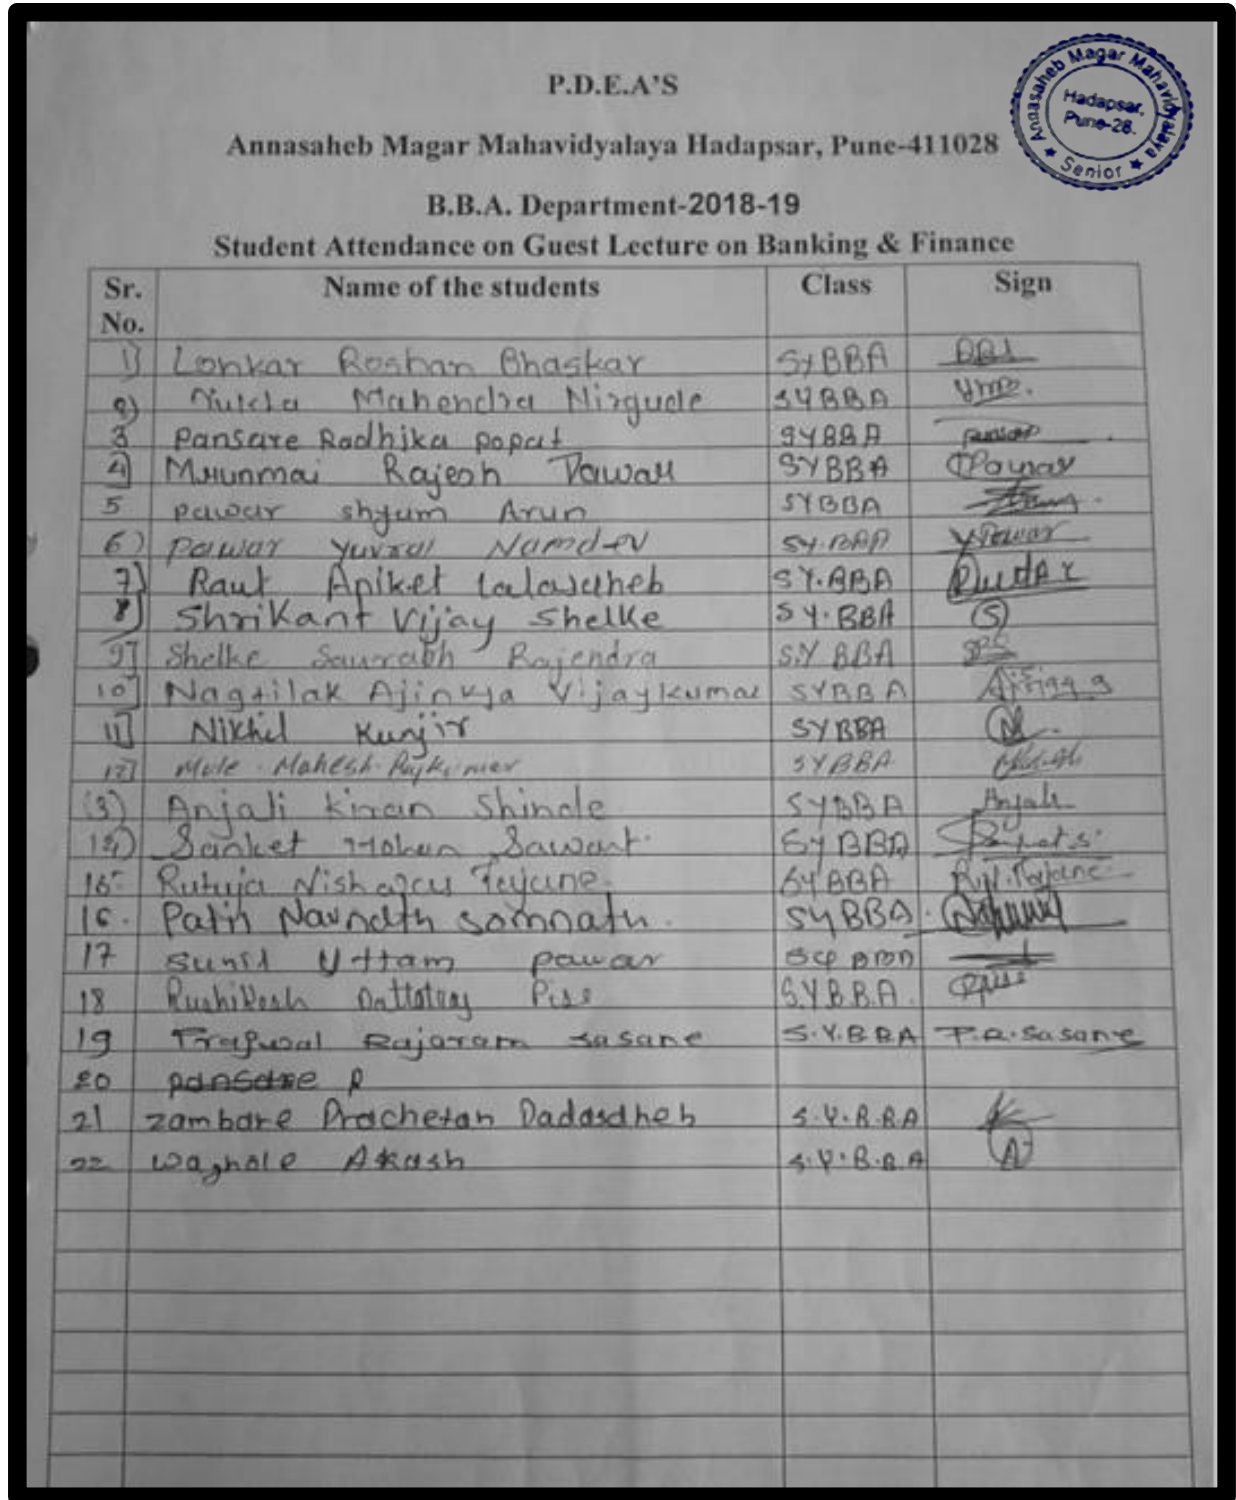 P.D.E.A'S
Annasaheb Magar Mahavidyalaya Hadapsar, Pune-411028
Annasaheb Magar Mahavidyalaya
Hadapsar,
Pune-28.
★ Senior ★
B.B.A. Department-2018-19
Student Attendance on Guest Lecture on Banking & Finance
Sr. No. Name of the students Class Sign
1) Lonkar Roshan Bhaskar SYBBA
2) Mahendra Nirgude SYBBA
3 Pansare Radhika popat SYBBA
4) Mrunmai Rajesh Pawar SYBBA TPawar
5 pawar shyam Arun SYBBA
6) pawar yuvraj Namdev SY.BBA YPawar
7) Raut Aniket Lalasaheb SY.BBA
8) Shrikant Vijay Shelke SY.BBA S
9] Shelke Saurabh Rajendra S.Y BBA
10] Nagtilak Ajinkya Vijaykumar SYBBA
11] Nikhil Kunjir SYBBA
12] Mule Mahesh Rajkumar SYBBA
13) Anjali kiran Shinde SYBBA Anjali
14) Sanket Mohan Sawant. SYBBA
15 Rutuja Tejane. SYBBA R.N.Tejane
16. Patil Navnath somnath. SYBBA.
17 sunil Uttam pawar
18 Rushikesh Dattatray Pise S.Y.B.B.A. Rpise
19 Rajaram sasane S.Y.B.B.A P.R.sasane
20 pansare R
21 zambare Prachetan Dadasaheb S.Y.B.B.A
22 waghole Akash S.Y.B.B.A A